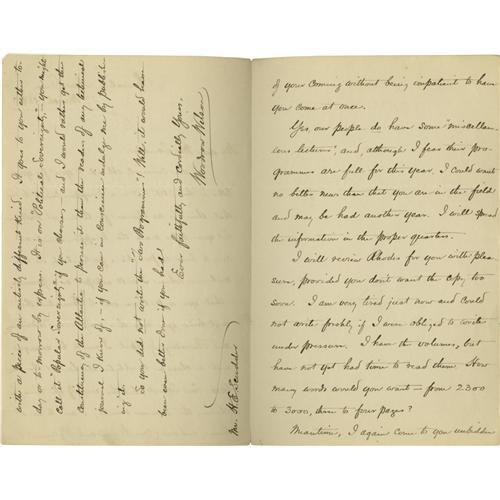 of your coming without being impatient to have
you come at once.
Yes, our people do have some "miscellan-
eous lectures", and, although I fear their pro-
grammes are full for this year, I could want
no better news than that you are in the field
and may be had another year. I will spread
the information in the proper quarters.
I will review Rhodes for you with plea-
sure, provided you don't want the copy too
soon. I am very tired just now and could
not write freshly if I were obliged to write
under pressure. I have the volumes, but
have not yet had time to read them. How
many words would you want – from 2300
to 3000, three to four pages?
Meantime, I again come to you unbidden
with a piece of an entirely different kind. It goes to you either to-
day or to-morrow by express. It is on "Political Sovereignty", – you might
call it "Popular Sovereignty", if you choose, – and I would rather get the
constituency of the Atlantic to peruse it than the readers of any technical
journal I know of, – if you can in conscience indulge me by publish-
ing it.
So you did not write the "War Programme"! Well, it would have
been even better done if you had.
Ever faithfully and cordially Yours,
Woodrow Wilson
Mr. H. E. Scudder